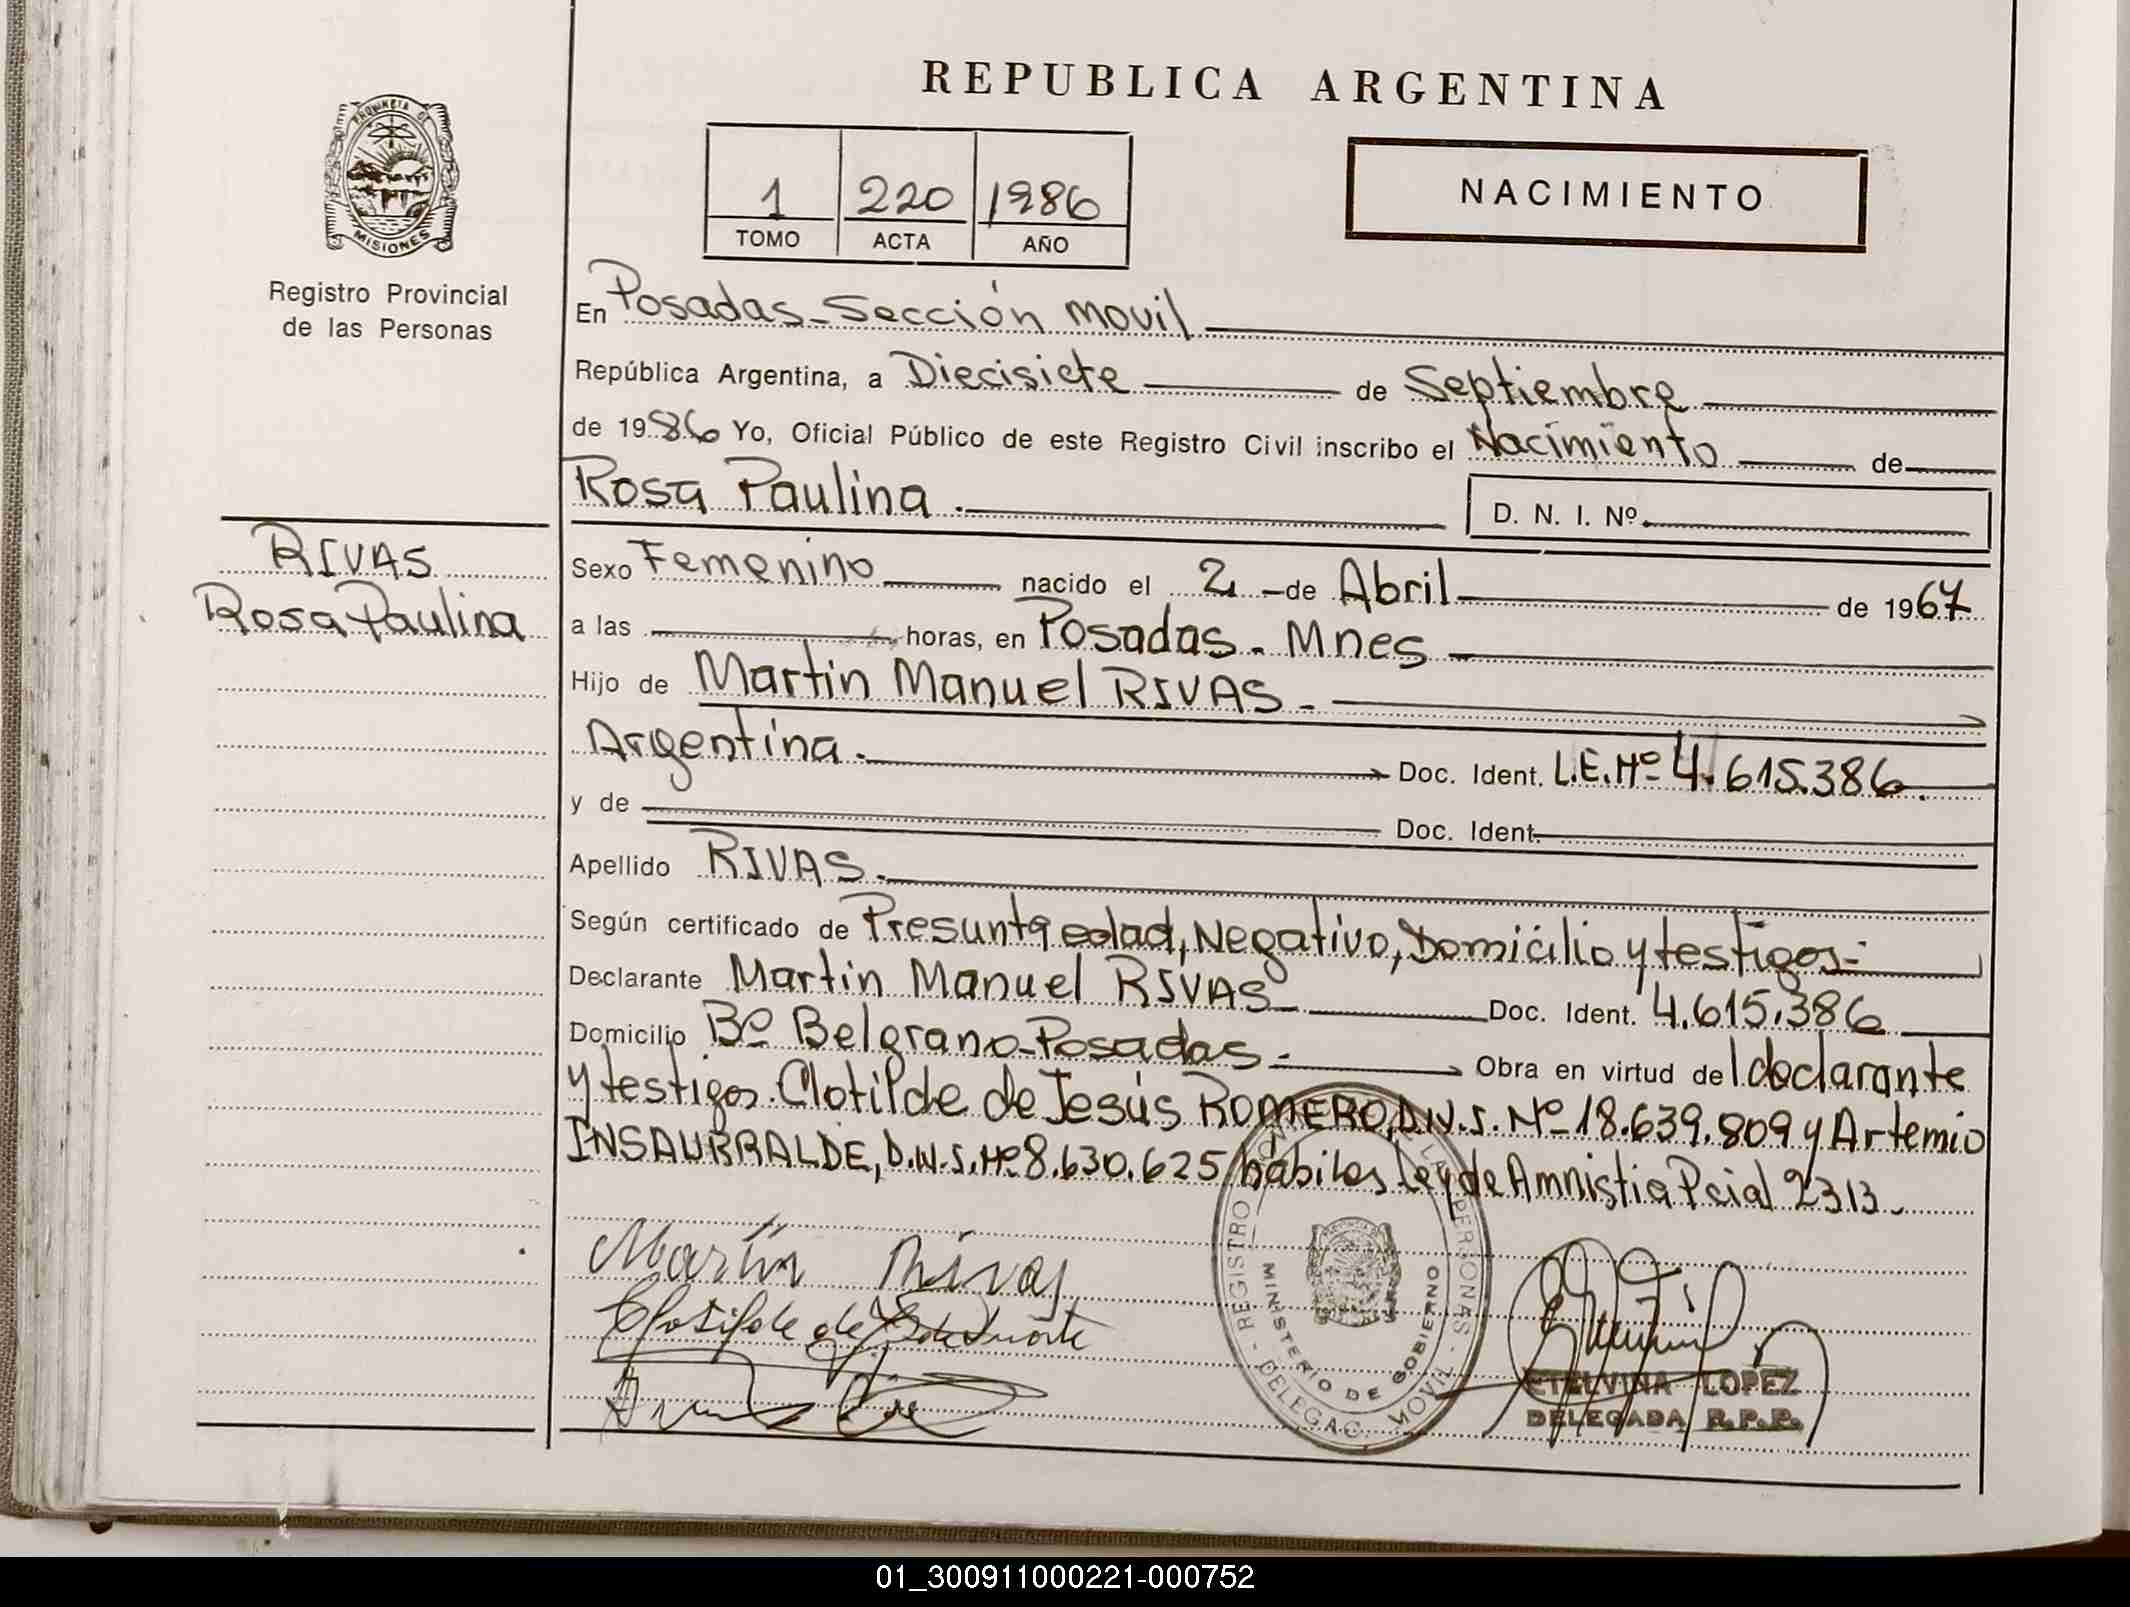 REPUBLICA ARGENTINA
PROVINCIA DE
MISIONES
Registro Provincial
de las Personas
1 220 1986
TOMO ACTA AÑO
NACIMIENTO
En Posadas-Sección Movil
República Argentina, a Diecisiete de Septiembre
de 1986 Yo, Oficial Público de este Registro Civil inscribo el Nacimiento de
Rosa Paulina.
D. N. I. Nº
RIVAS
Rosa Paulina
Sexo Femenino nacido el 2 de Abril de 1967
a las horas, en Posadas - Mnes
Hijo de Martin Manuel RIVAS.
Argentina. Doc. Ident. L.E.Nº 4.615.386.
y de Doc. Ident.
Apellido RIVAS.
Según certificado de Presunta edad, Negativo, Domicilio y testigos.-
Declarante Martin Manuel RIVAS Doc. Ident. 4.615.386
Domicilio Bº Belgrano-Posadas. Obra en virtud del declarante
y testigos. Clotilde de Jesús ROMERO, D.N.I. Nº 18.639.809 y Artemio
INSAURRALDE, D.N.I. Nº 8.630.625 habiles Ley de Amnistia Pcial 2313.
Martin Rivas
Clotilde de
REGISTRO PERSONAS - DELEGAC. MOVIL -
MINISTERIO DE GOBIERNO
ETELVINA LOPEZ
DELEGADA R.P.P.
01_300911000221-000752